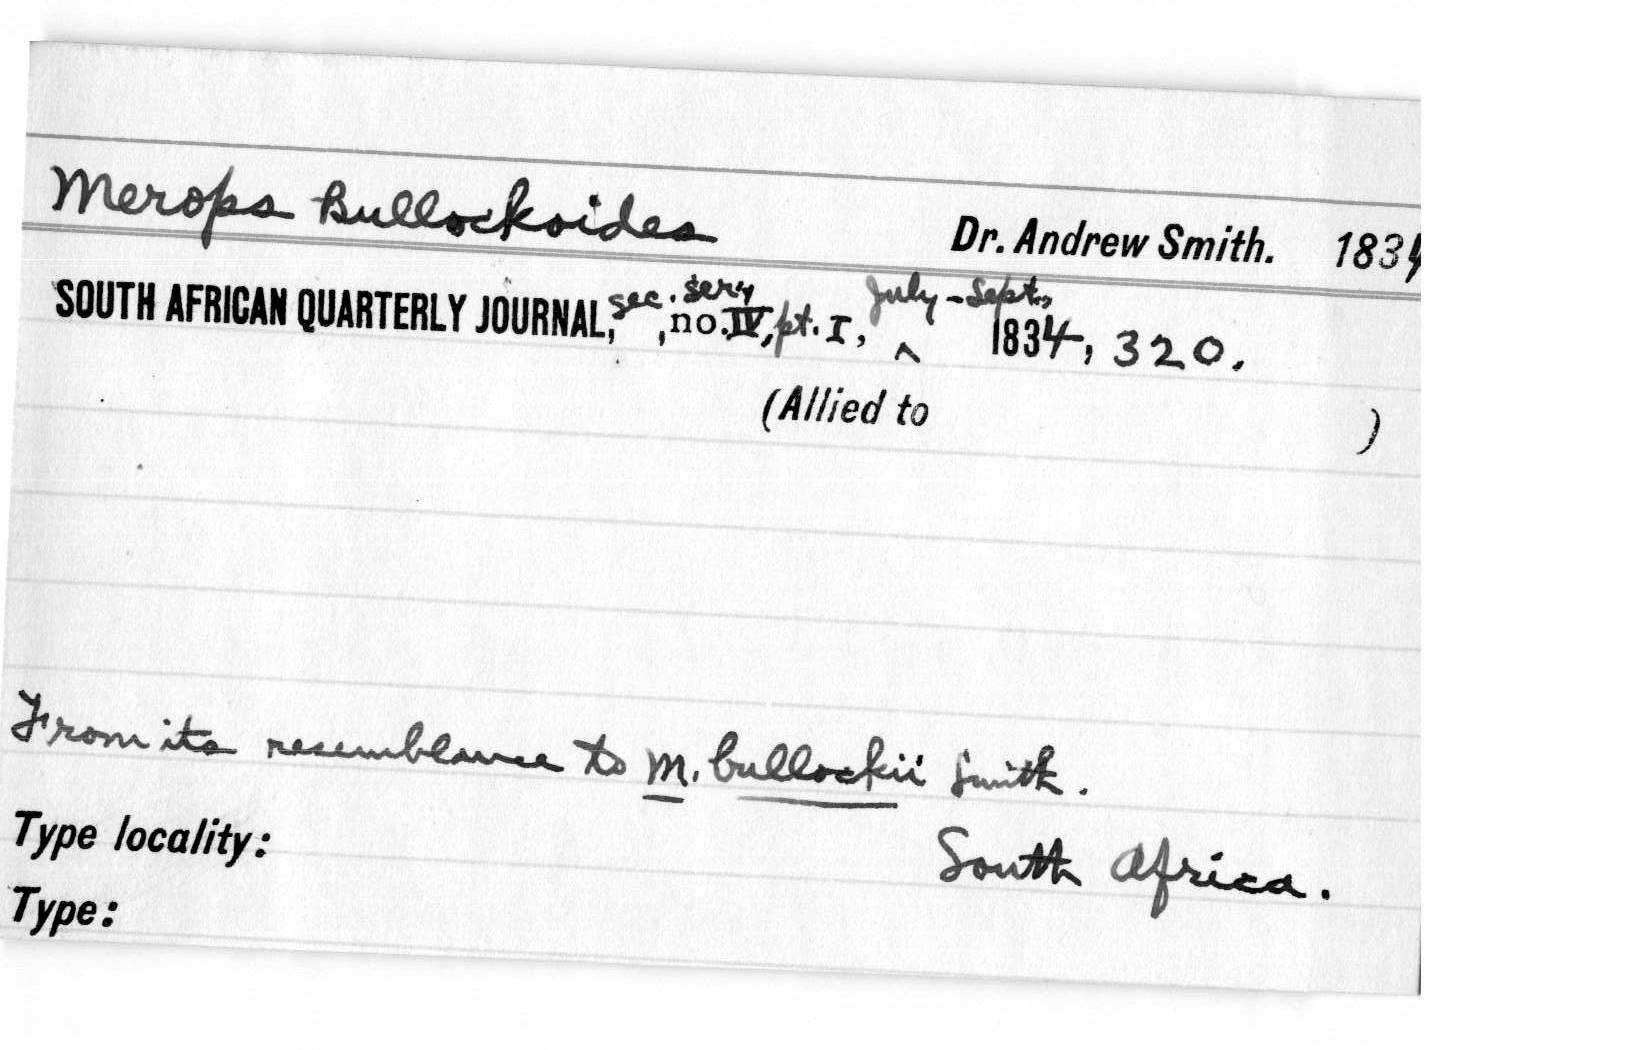 Merops Bullockoides Dr. Andrew Smith. 1834
SOUTH AFRICAN QUARTERLY JOURNAL, sec. sery, no. IV, pt. I, ^ July-Sept., 1834, 320.
(Allied to )
From its resemblance to M. bullockii Smith.
Type locality: South Africa.
Type: